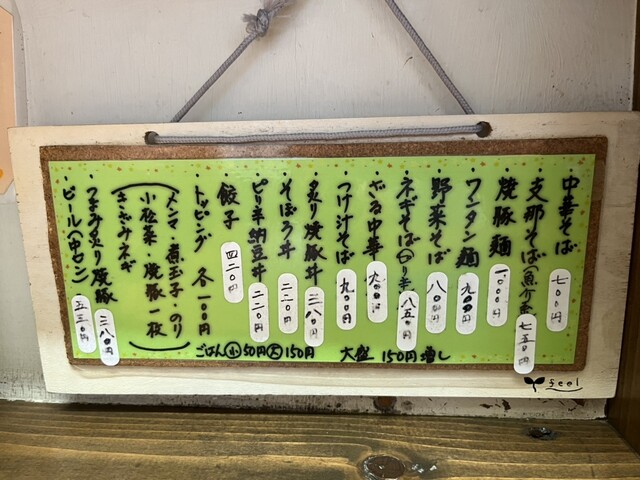 ・中華そば 七〇〇円
・支那そば(魚介系 七五〇円
・焼豚麺 一〇〇〇円
・ワンタン麺 九〇〇円
・野菜そば 八〇〇円
・ネギそば(ピリ辛 八五〇円
・ざる中華 円
・つけ汁そば 九〇〇円
・炙り焼豚丼 三八〇円
・そぼろ丼 二二〇円
・ピリ辛納豆丼 二二〇円
・餃子 四二〇円
トッピング 各一〇〇円
(メンマ・煮玉子・のり
小松菜・焼豚一枚)
きざみネギ
・つまみ炙り焼豚 三八〇円
・ビール(中ビン) 五三〇円
ごはん小50円大150円
大盛 150円増し